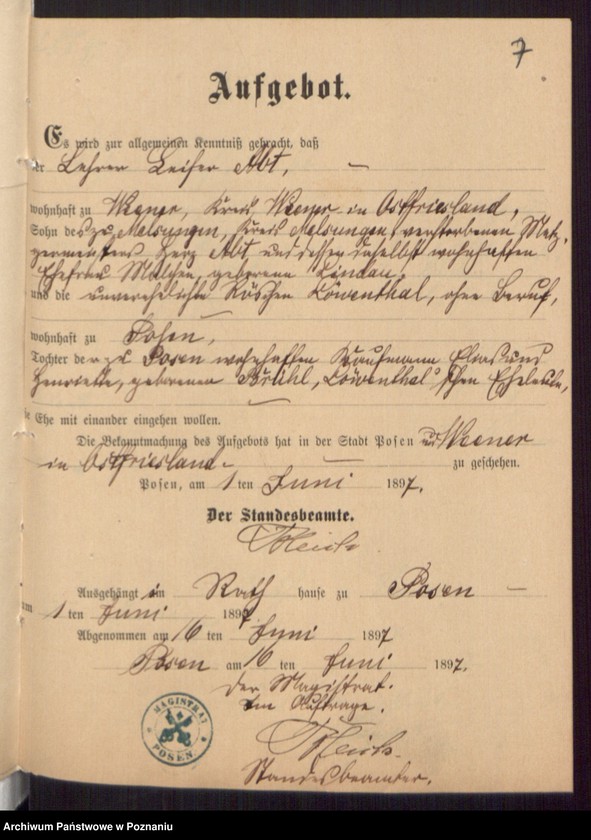 7
Aufgebot.
Es wird zur allgemeinen Kenntniß gebracht, daß
er Lehrer Leiser Abt,
wohnhaft zu Weener, Kreis Weener in Ostfriesland,
Sohn des zu Melsungen, Kreis Melsungen, verstorbenen Metz-
germeisters Herz Abt und dessen daselbst wohnhaften
Ehefrau Malchen, geborene Lindau,
und die unverehelichte Röschen Löwenthal, ohne Beruf,
wohnhaft zu Posen,
Tochter der zu Posen wohnhaften Kaufmann Elias und
Henriette, geborenen Brühl, Löwenthal'schen Eheleute,
ie Ehe mit einander eingehen wollen.
Die Bekanntmachung des Aufgebots hat in der Stadt Posen u. Weener
in Ostfriesland zu geschehen.
Posen, am 1 ten Juni 1897.
Der Standesbeamte.
Ausgehängt im Rath hause zu Posen
am 1 ten Juni 1897
Abgenommen am 16 ten Juni 1897
Posen am 16 ten Juni 1897.
Der Magistrat.
Im Auftrage.
Standesbeamter.
MAGISTRAT
POSEN
Archiwum Państwowe w Poznaniu